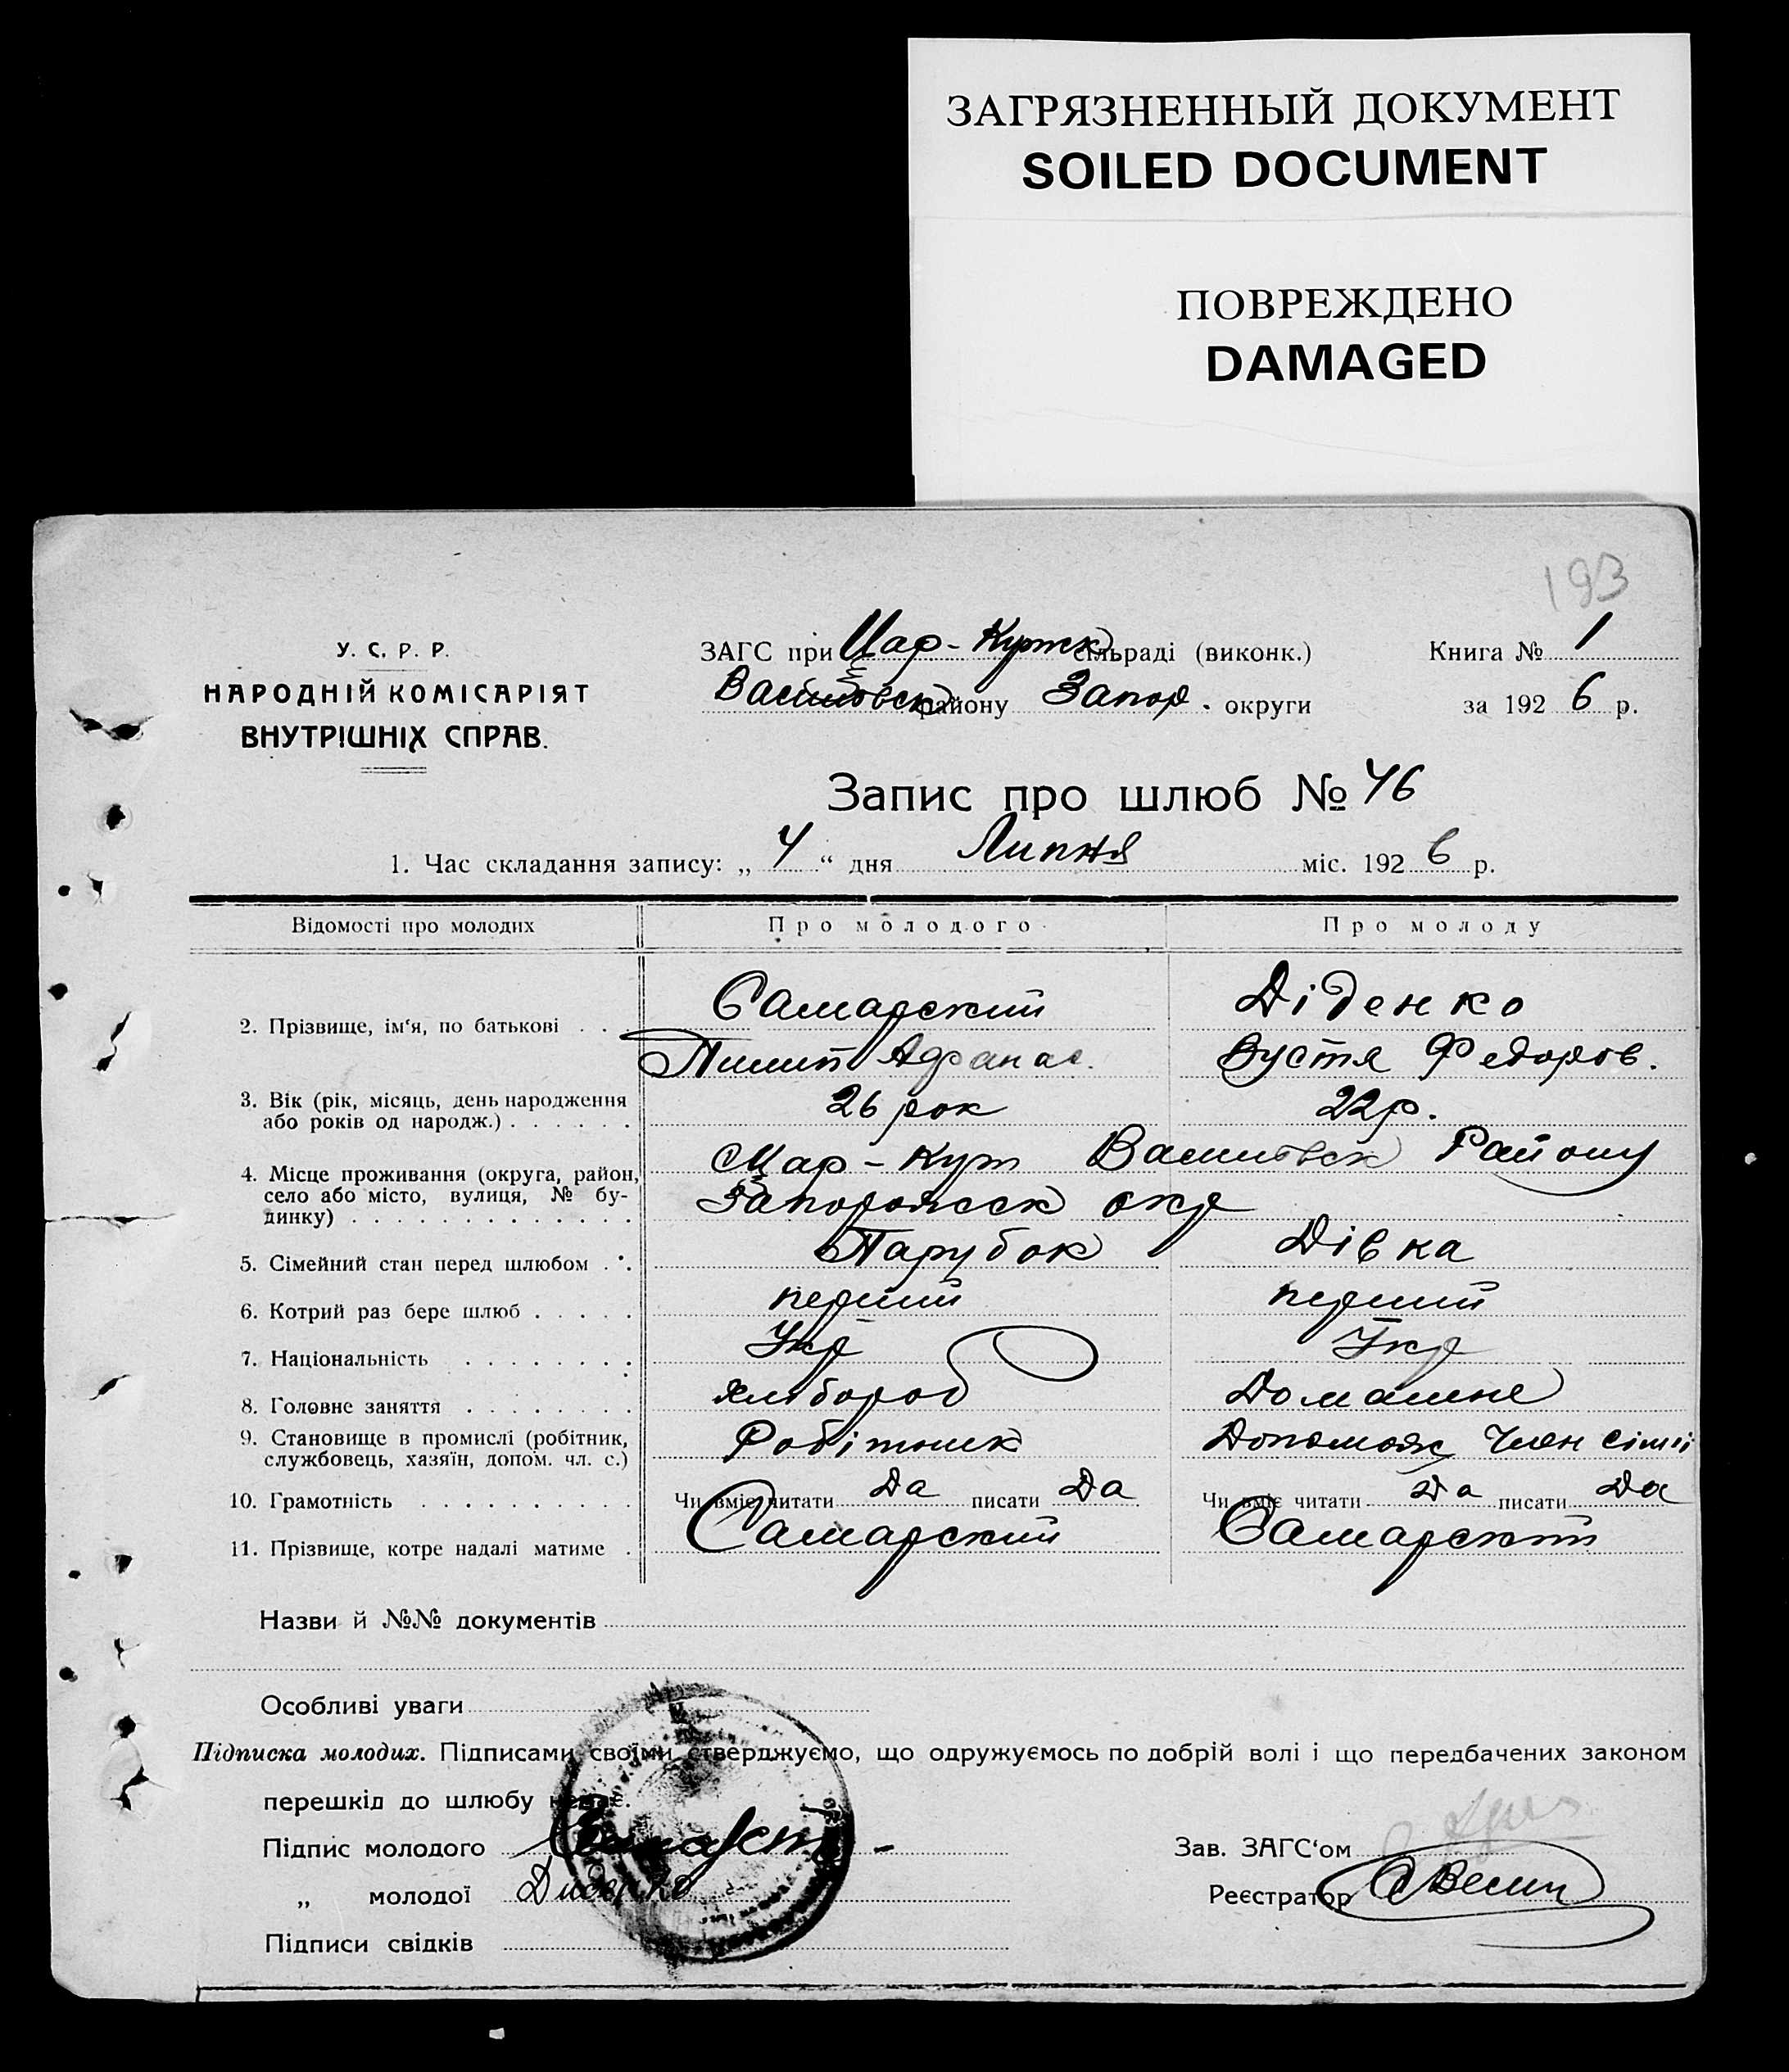 ЗАГРЯЗНЕННЫЙ ДОКУМЕНТ
SOILED DOCUMENT
ПОВРЕЖДЕНО
DAMAGED
193
У. С. Р. Р.
НАРОДНІЙ КОМІСАРІЯТ
ВНУТРІШНІХ СПРАВ.
ЗАГС при Цар-Кутск сільраді (виконк.)
Василівск району Запор. округи
Книга № 1
за 1926 р.
Запис про шлюб № 46
1. Час складання запису: „ 4 “ дня Липня міс. 1926 р.
Відомості про молодих Про молодого Про молоду
2. Прізвище, ім‘я, по батькові . . Самарский Діденко
Пилип Афанас. Вустя Федоров.
3. Вік (рік, місяць, день народження 26 рок 22 р.
або років од народж.) . . . . . .
4. Місце проживання (округа, район, Цар-Кут Васильвск Району
село або місто, вулиця, № бу- Запорожск окр
динку) . . . . . . . . . . . . .
5. Сімейний стан перед шлюбом . . Парубок Дівка
6. Котрий раз бере шлюб . . . . . перший перший
7. Національність . . . . . . . . Укр Укр
8. Головне заняття . . . . . . . . Хлібороб Домашнє
9. Становище в промислі (робітник, Робітник Допомож член сімїі
службовець, хазяїн, допом. чл. с.)
10. Грамотність . . . . . . . . . . Чи вміє читати Да писати Да Чи вміє читати Да писати Да
11. Прізвище, котре надалі матиме . Самарский Самарский
Назви й №№ документів
Особливі уваги
Підписка молодих. Підписами своїми стверджуємо, що одружуємось по добрій волі і що передбачених законом
перешкід до шлюбу немає.
Підпис молодого Зав. ЗАГС‘ом
„ молодої Диденко Реєстратор
Підписи свідків